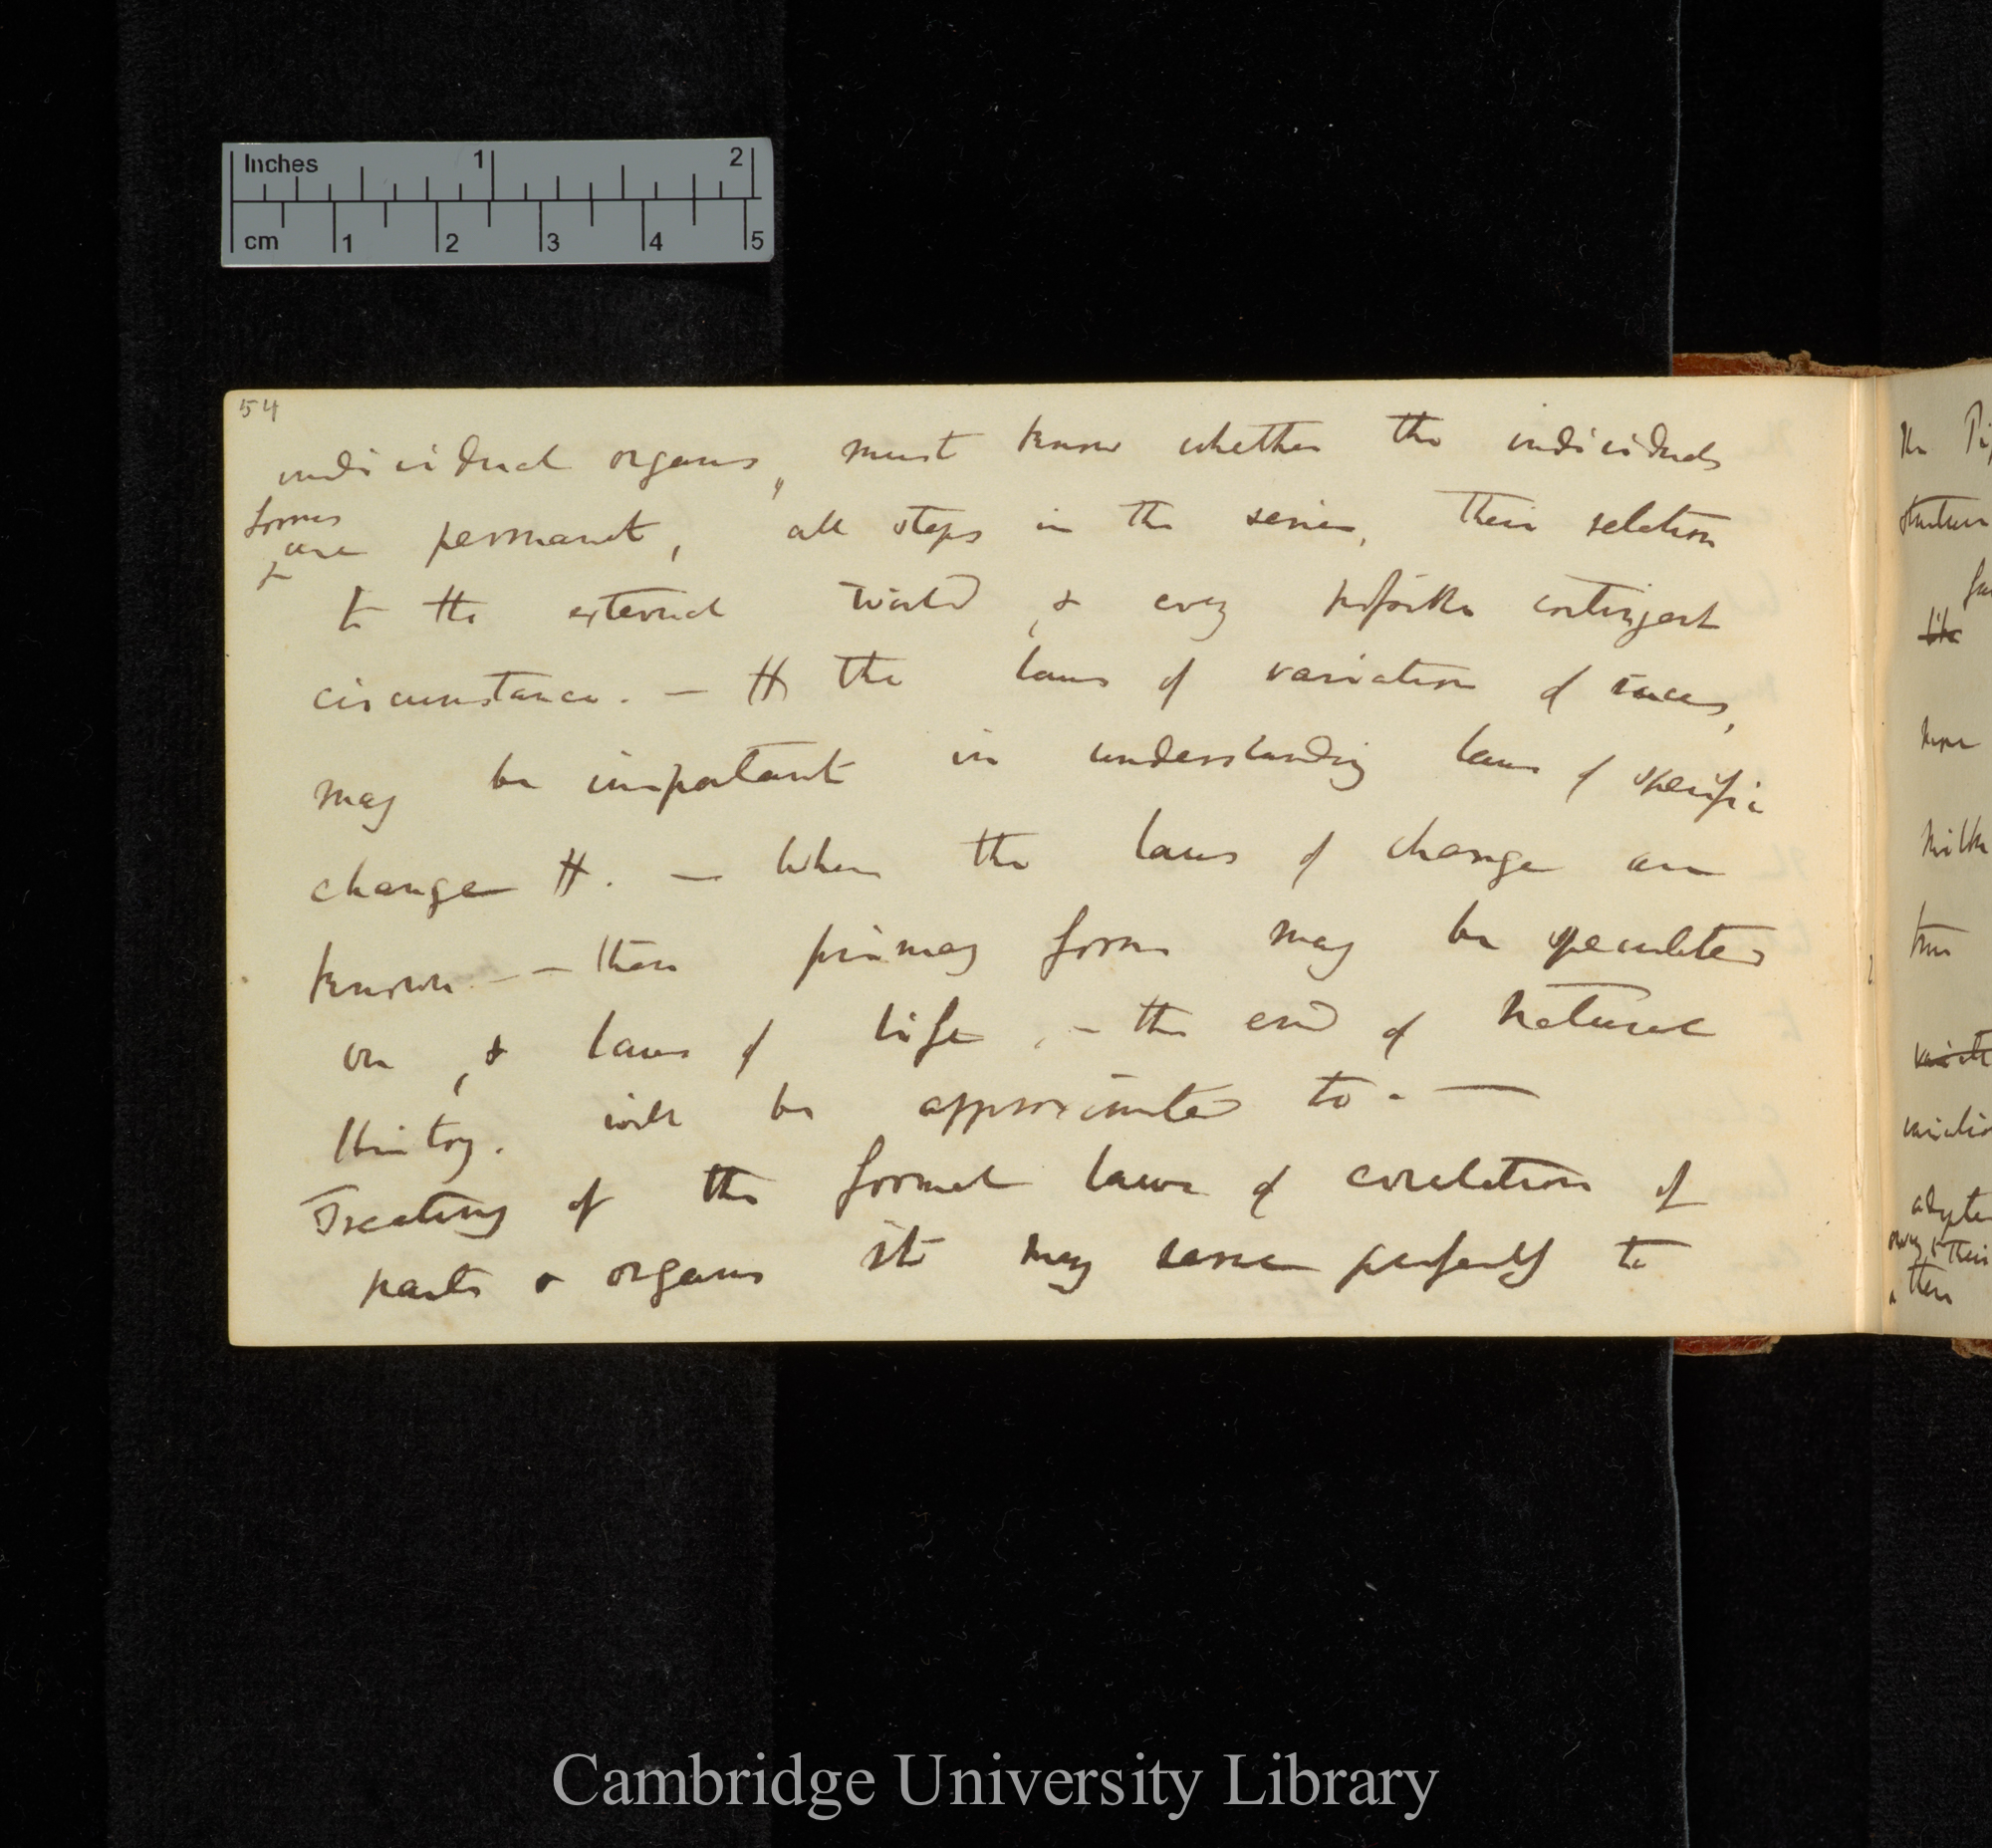 Inches 1 2
cm 1 2 3 4 5
54
individual organs, must know whether the individuals
forms
are permanent, all steps in the series, their relation
to the external world, & every possible contingent
circumstance. — # the laws of variation of races,
may be important in understanding laws of specific
change #. — When the laws of change are
known — — then primary forms may be speculated
on, & laws of life, – the end of Natural
History. will be approximated to. —
Treating of the formal laws of corelation of
parts & organs it may serve perfectly to
the
structure
like
milk
true
variation
their
then
Cambridge University Library